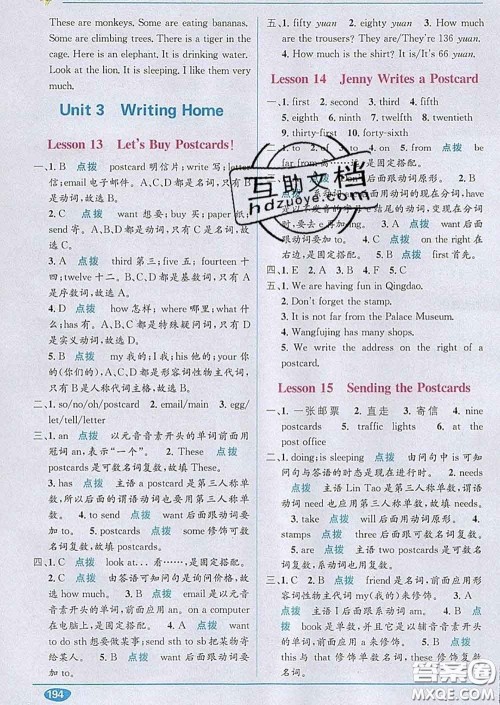 These are monkeys. Some are eating bananas.
Some are climbing trees. There is a tiger in the
cage. Here is an elephant. It is drinking water.
Look at the lion. It is sleeping. I like them very
much.
Unit 3 Writing Home
Lesson 13 Let's Buy Postcards!
一、1. B 点拨 postcard 明信片; write 写; letter
信; email 电子邮件。A、C、D 都是名词, 只有 B
是动词, 故选 B。
2. C 点拨 want 想要; buy 买; paper 纸; send
A、B、D 都是动词, 只有 C 是名词, 故选 C。
3. A 点拨 third 第三; five 五; fourteen 十
四; twelve 十二。B、C、D 都是基数词, 只有 A
是序数词, 故选 A。
4. D 点拨 how 怎样; where 哪里; what 什
么; have 有。A、B、C 都是特殊疑问词, 只有 D
是实义动词, 故选 D。
5. B 点拨 my 我的; I 我; his 他的; your 你的/
你们的。A、C、D 都是形容词性物主代词, 只有
B 是人称代词主格, 故选 B。
二、1. so/no/oh/postcard 2. email/main 3. egg/
let/tell/letter
三、1. an 点拨 以元音音素开头的单词前面用
冠词 an, 表示“一个”。 2. These 点拨
postcards 是可数名词复数, 故填 These。
3. has 点拨 主语是第三人称单
数, 所以后面的谓语动词也要用第三人称单
数。 4. to write 点拨 want 后面跟动词要
加 to。 5. postcards 点拨 some 修饰可数
名词复数, 故填 postcards。
四、1. C 点拨 look at… 看……, 是固定搭配。
2. C 点拨 由答语可知问句是询问价格, 故
选 how much。 3. B 点拨 email 是以元音
音素开头的单词, 前面应用 an。on a computer
在电脑上, 是固定搭配。 4. A 点拨 want
to do sth 想要做某事; send sth to sb 把某物寄
给某人。 5. B 点拨 want 后面跟动词要
加 to。
194
五、1. fifty yuan 2. eighty yuan 3. How
much are the trousers? They are/They're 136
yuan. 4. How much is the shirt? It is/It's 66 yuan.
Lesson 14 Jenny Writes a Postcard
一、1. first 2. second 3. third 4. fifth
5. eighth 6. ninth 7. twelfth 8. twentieth
9. thirty-first 10. forty-sixth
二、1. to 2. of 3. to 4. on 5. from 点拨 be
far from 离……远, 是固定搭配。
三、1. A
want 后面跟动词要加 to。 4. A 点拨 on the right 在
右边, 是固定搭配。 5. B 点拨 first 首先。
四、1. E 2. A 3. B 4. F 5. C
五、1. We are having fun in Qingdao.
2. Don't forget the stamp.
3. It's not far from the Palace Museum.
4. Wangfujing has many shops.
5. We write the address on the right of a
postcard.
Lesson 15 Sending the Postcards
一、1. 一张邮票 2. 直走 3. 寄信 4. nine
postcards 5. traffic lights 6. at the
post office
二、1. doing; is sleeping 点拨 由问句中 is 可
知问句与答语的时态是现在进行时。 2. needs
点拨 主语 Lin Tao 是第三人称单数, 所以动词
need 也应用第三人称单数。 3. take 点拨
must 后面用动词原形。 4. stamps 点拨
three 后面跟可数名词复数。 5. are 点拨
主语 two postcards 是可数名词
复数, 系动词也用复数。
三、1. C 2. B 点拨 friend 是名词, 前面应用形
容词性物主代词 my(我的)来修饰。 3. A
点拨 主语 I 后面应用动词原形。 4. A 点拨
and 表示并列关系。 5. B 点拨
this 和 that 修饰单数名词, these
修饰复数名词。
互助文档
hdzuoye.com
答案圈
MXQE.COM